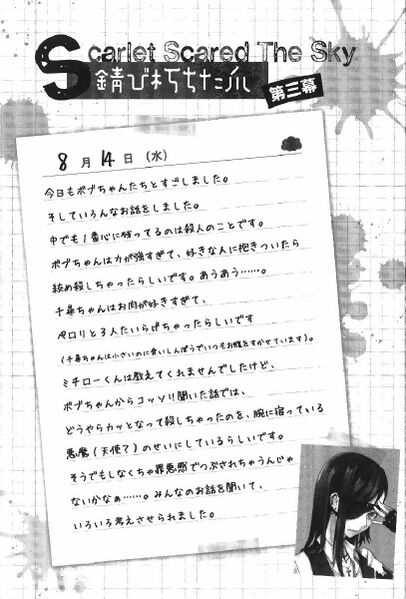 Scarlet Scared The Sky
錆び朽ちた爪
第三幕
8月14日(水)
今日もボブちゃんたちとすごしました。
そしていろんなお話をしました。
中でも1番心に残ってるのは殺人のことです。
ボブちゃんは力が強すぎて、好きな人に抱きついたら
絞め殺しちゃったらしいです。あうあう……。
千尋ちゃんはお肉が好きすぎて、
ペロリと3人たいらげちゃったらしいです
(千尋ちゃんは小さいのに食いしんぼうでいつもお腹をすかせています)。
ミチローくんは教えてくれませんでしたけど、
ボブちゃんからコッソリ聞いた話では、
どうやらカッとなって殺しちゃったのを、腕に宿っている
悪魔(天使?)のせいにしているらしいです。
そうでもしなくちゃ罪悪感でつぶされちゃうんじゃ
ないかなぁ……。みんなのお話を聞いて、
いろいろ考えさせられました。